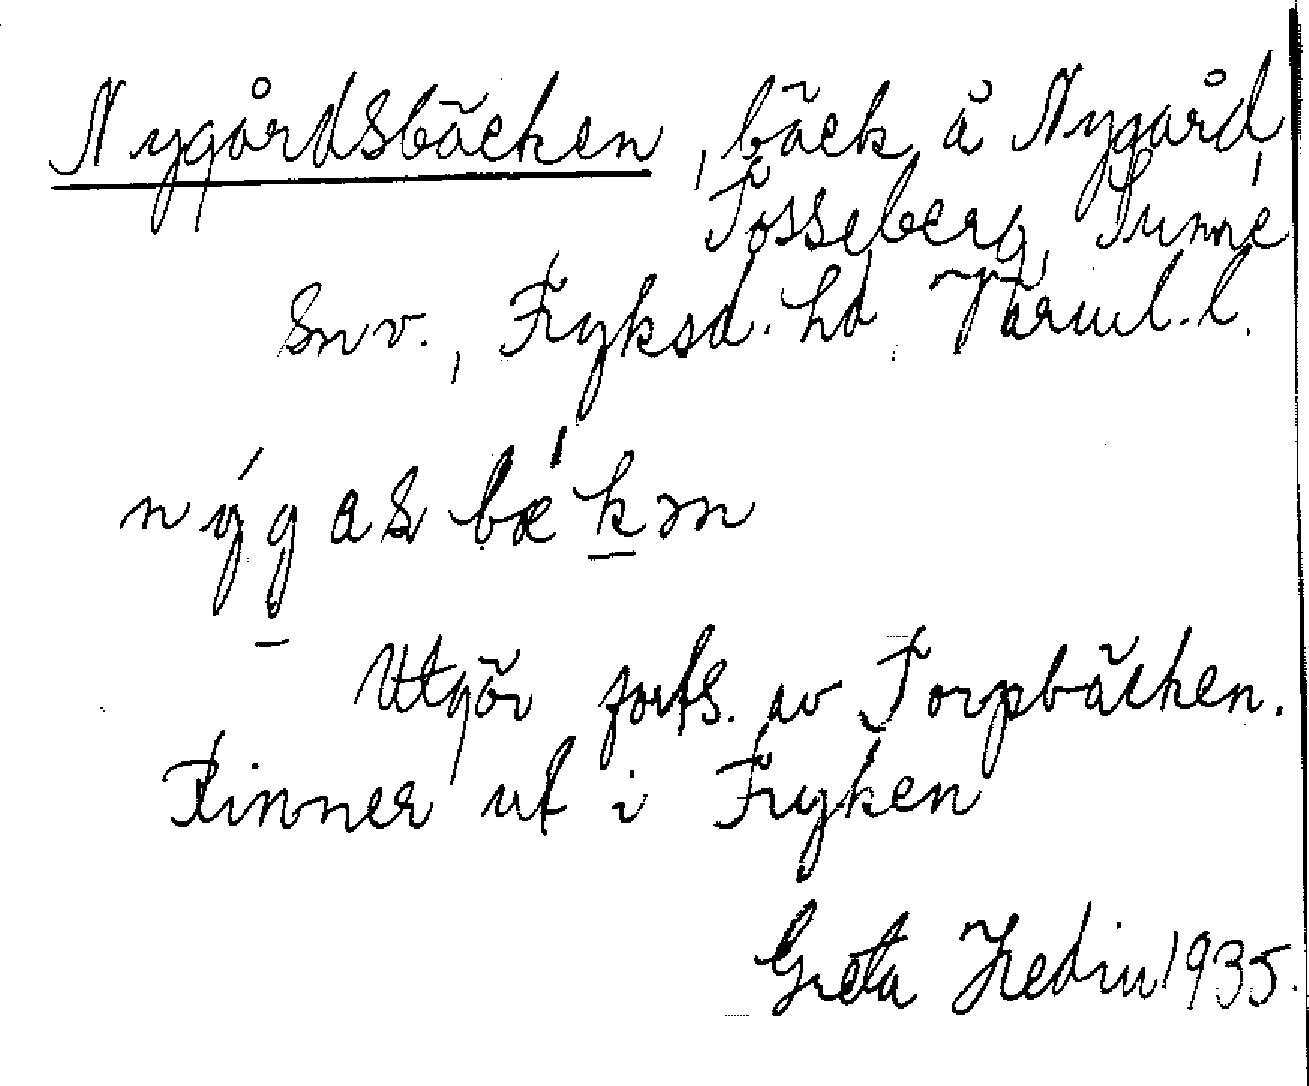 Nygårdsbäcken, bäck å Nygård,
Tosseberg, Sunne
snv., Fryksd. hd, Värml. l.
nýgasbækən
Utgör forts. av Torpbäcken.
Rinner ut i Fryken
Greta Hedin 1935.